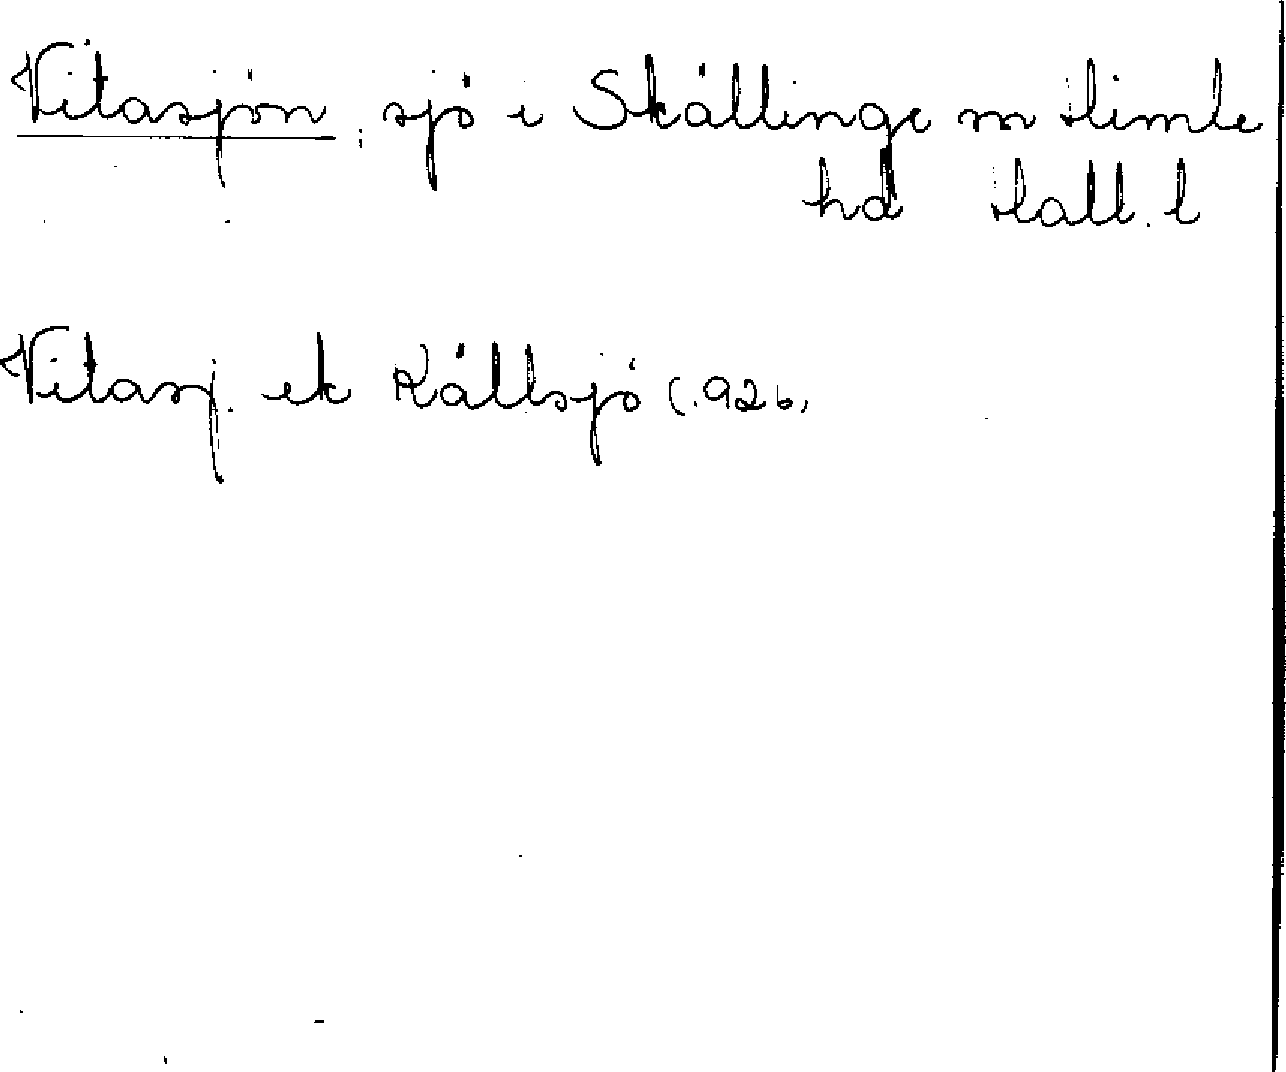 Vitasjön, sjö i Skällinge sn Himle
hd Hall. l
Vitasj. ek Källsjö (1926)